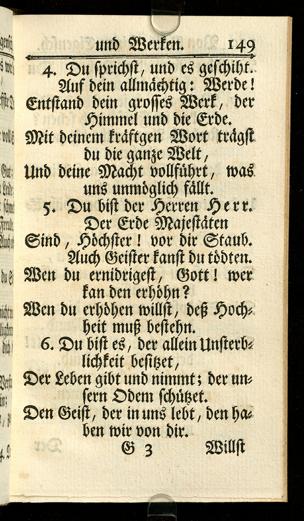 und Werken. 149
4. Du sprichst, und es geschiht.
Auf dein allmächtig: Werde!
Entstand dein grosses Werk, der
Himmel und die Erde.
Mit deinem kräftgen Wort trägst
du die ganze Welt,
Und deine Macht vollführt, was
uns unmöglich fällt.
5. Du bist der Herren Herr.
Der Erde Majestäten
Sind, Höchster! vor dir Staub.
Auch Geister kanst du tödten.
Wen du ernidrigest, Gott! wer
kan den erhöhn?
Wen du erhöhen willst, deß Hoch-
heit muß bestehn.
6. Du bist es, der allein Unsterb-
lichkeit besitzet,
Der Leben gibt und nimmt; der un-
sern Odem schützet.
Den Geist, der in uns lebt, den ha-
ben wir von dir.
G 3 Willst